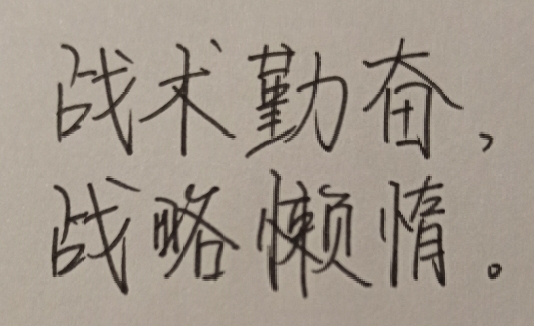 战术勤奋，
战略懒惰。